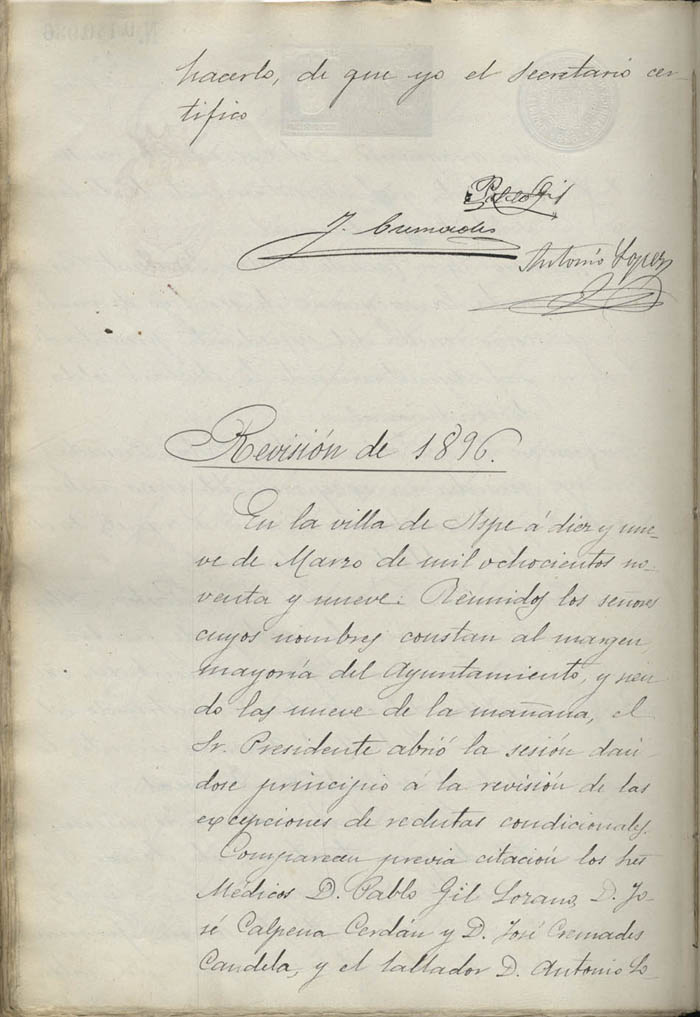 hacerlo, de que yo el secretario cer-
tifico
Pablo Gil
J. Cremades
Antonio Lopez
Revisión de 1896.
En la villa de Aspe á diez y nue-
ve de Marzo de mil ochocientos no-
venta y nueve. Reunidos los señores
cuyos nombres constan al margen,
mayoría del Ayuntamiento, y sien-
do las nueve de la mañana, el
Sr. Presidente abrió la sesión dan-
dose principio á la revisión de las
excepciones de reclutas condicionales.
Comparecen previa citación los Sres
Médicos D. Pablo Gil Lozano, D. Jo-
sé Calpena Cerdán y D. José Cremades
Candela, y el tallador D. Antonio Lo-